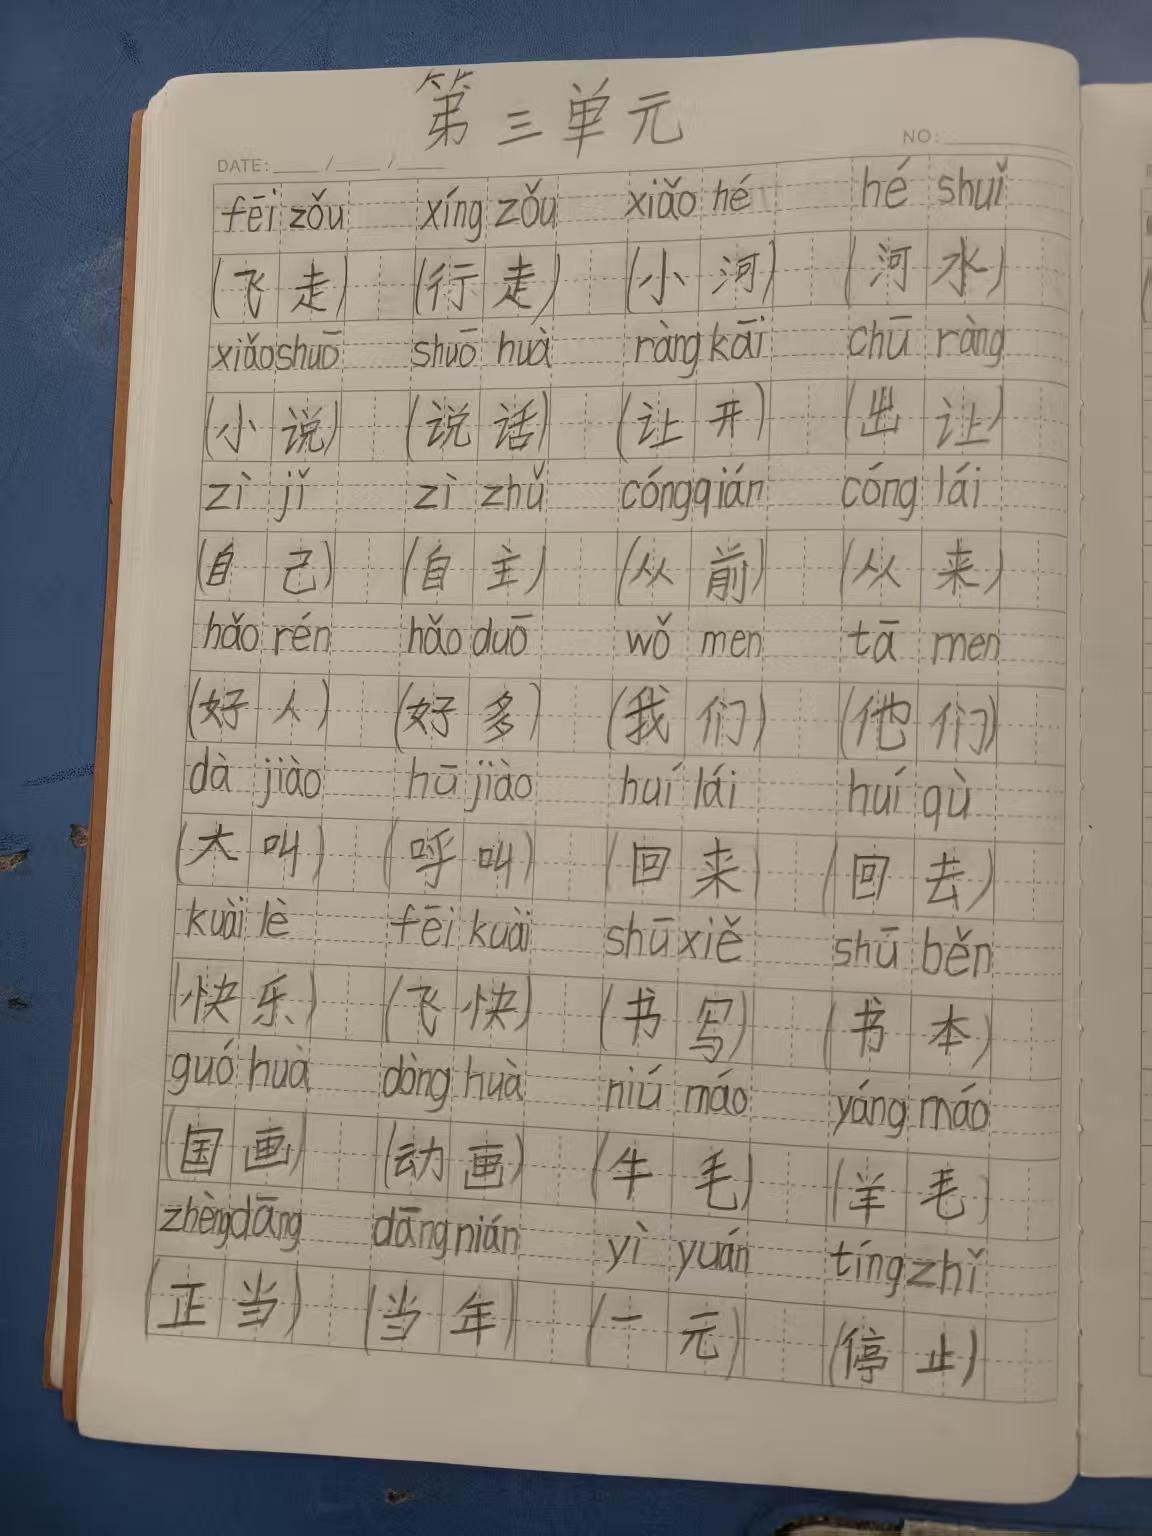 第三单元
DATE: ____/____/____ NO: ________
fēi zǒu xíng zǒu xiǎo hé hé shuǐ
(飞走) (行走) (小河) (河水)
xiǎo shuō shuō huà ràng kāi chū ràng
(小说) (说话) (让开) (出让)
zì jǐ zì zhǔ cóng qián cóng lái
(自己) (自主) (从前) (从来)
hǎo rén hǎo duō wǒ men tā men
(好人) (好多) (我们) (他们)
dà jiào hū jiào huí lái huí qù
(大叫) (呼叫) (回来) (回去)
kuài lè fēi kuài shū xiě shū běn
(快乐) (飞快) (书写) (书本)
guó huà dòng huà niú máo yáng máo
(国画) (动画) (牛毛) (羊毛)
zhèng dāng dāng nián yì yuán tíng zhǐ
(正当) (当年) (一元) (停止)